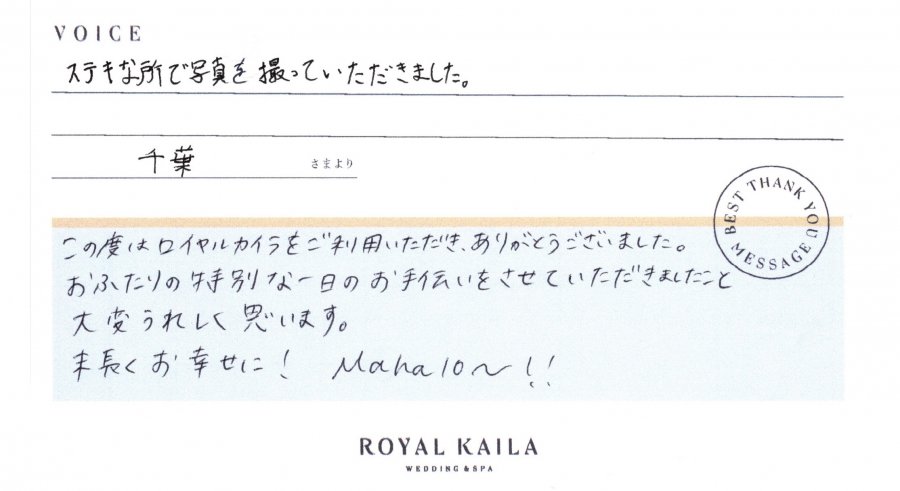 VOICE
ステキな所で写真を撮っていただきました。
千葉 さまより
BEST THANK YOU MESSAGE
この度はロイヤルカイラをご利用いただき、ありがとうございました。
おふたりの特別な一日のお手伝いをさせていただきましたこと
大変うれしく思います。
末長くお幸せに! Mahalo〜!!
ROYAL KAILA
WEDDING & SPA